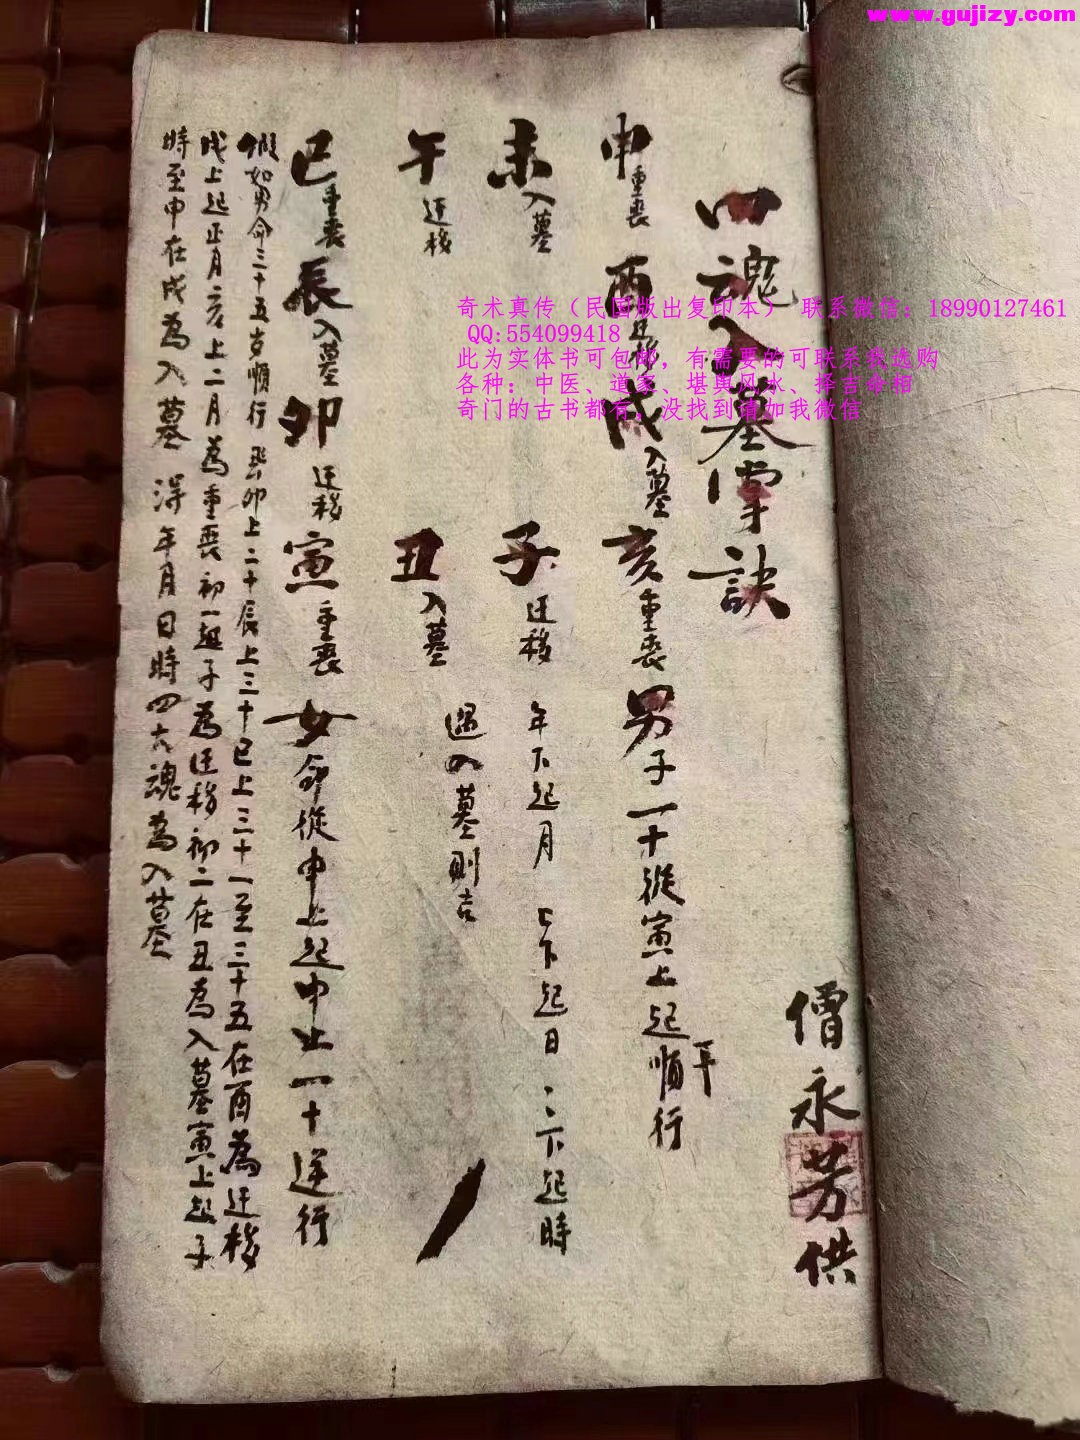 www.gujizy.com
奇术真传（民国版出复印本） 联系微信：18990127461
QQ:554099418
此为实体书可包邮，有需要的可联系我选购
各种：中医、道家、堪舆风水、择吉命相
奇门的古书都有，没找到请加我微信
四魂入墓掌訣
僧永芳供
申重喪 酉迁移 戌入墓 亥重喪 男子一十從寅上起順行
一年
未入墓 子迁移 年下起月 月下起日 日下起時
午迁移 丑入墓 遇入墓則吉
巳重喪 辰入墓 卯迁移 寅重喪 女命從申上起申上一十逆行
假如男命三十五岁順行 卯上二十辰上三十巳上三十一至三十五在酉為迁移
戌上起正月亥上二月為重喪初一起子為迁移初二在丑為入墓寅上起子
時至申在戌為入墓 得年月日時四六魂為入墓